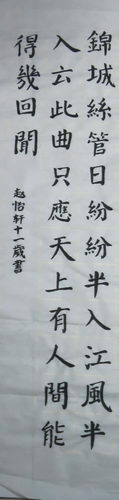 錦城絲管日紛紛半入江風半
入云此曲只應天上有人間能
得幾回聞
赵怡轩十一歲書